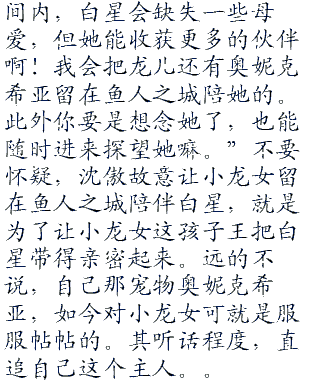 间内，白星会缺失一些母
爱，但她能收获更多的伙伴
啊！我会把龙儿还有奥妮克
希亚留在鱼人之城陪她的。
此外你要是想念她了，也能
随时进来探望她嘛。”不要
怀疑，沈傲故意让小龙女留
在鱼人之城陪伴白星，就是
为了让小龙女这孩子王把白
星带得亲密起来。远的不
说，自己那宠物奥妮克希
亚，如今对小龙女可就是服
服帖帖的。其听话程度，直
追自己这个主人。。